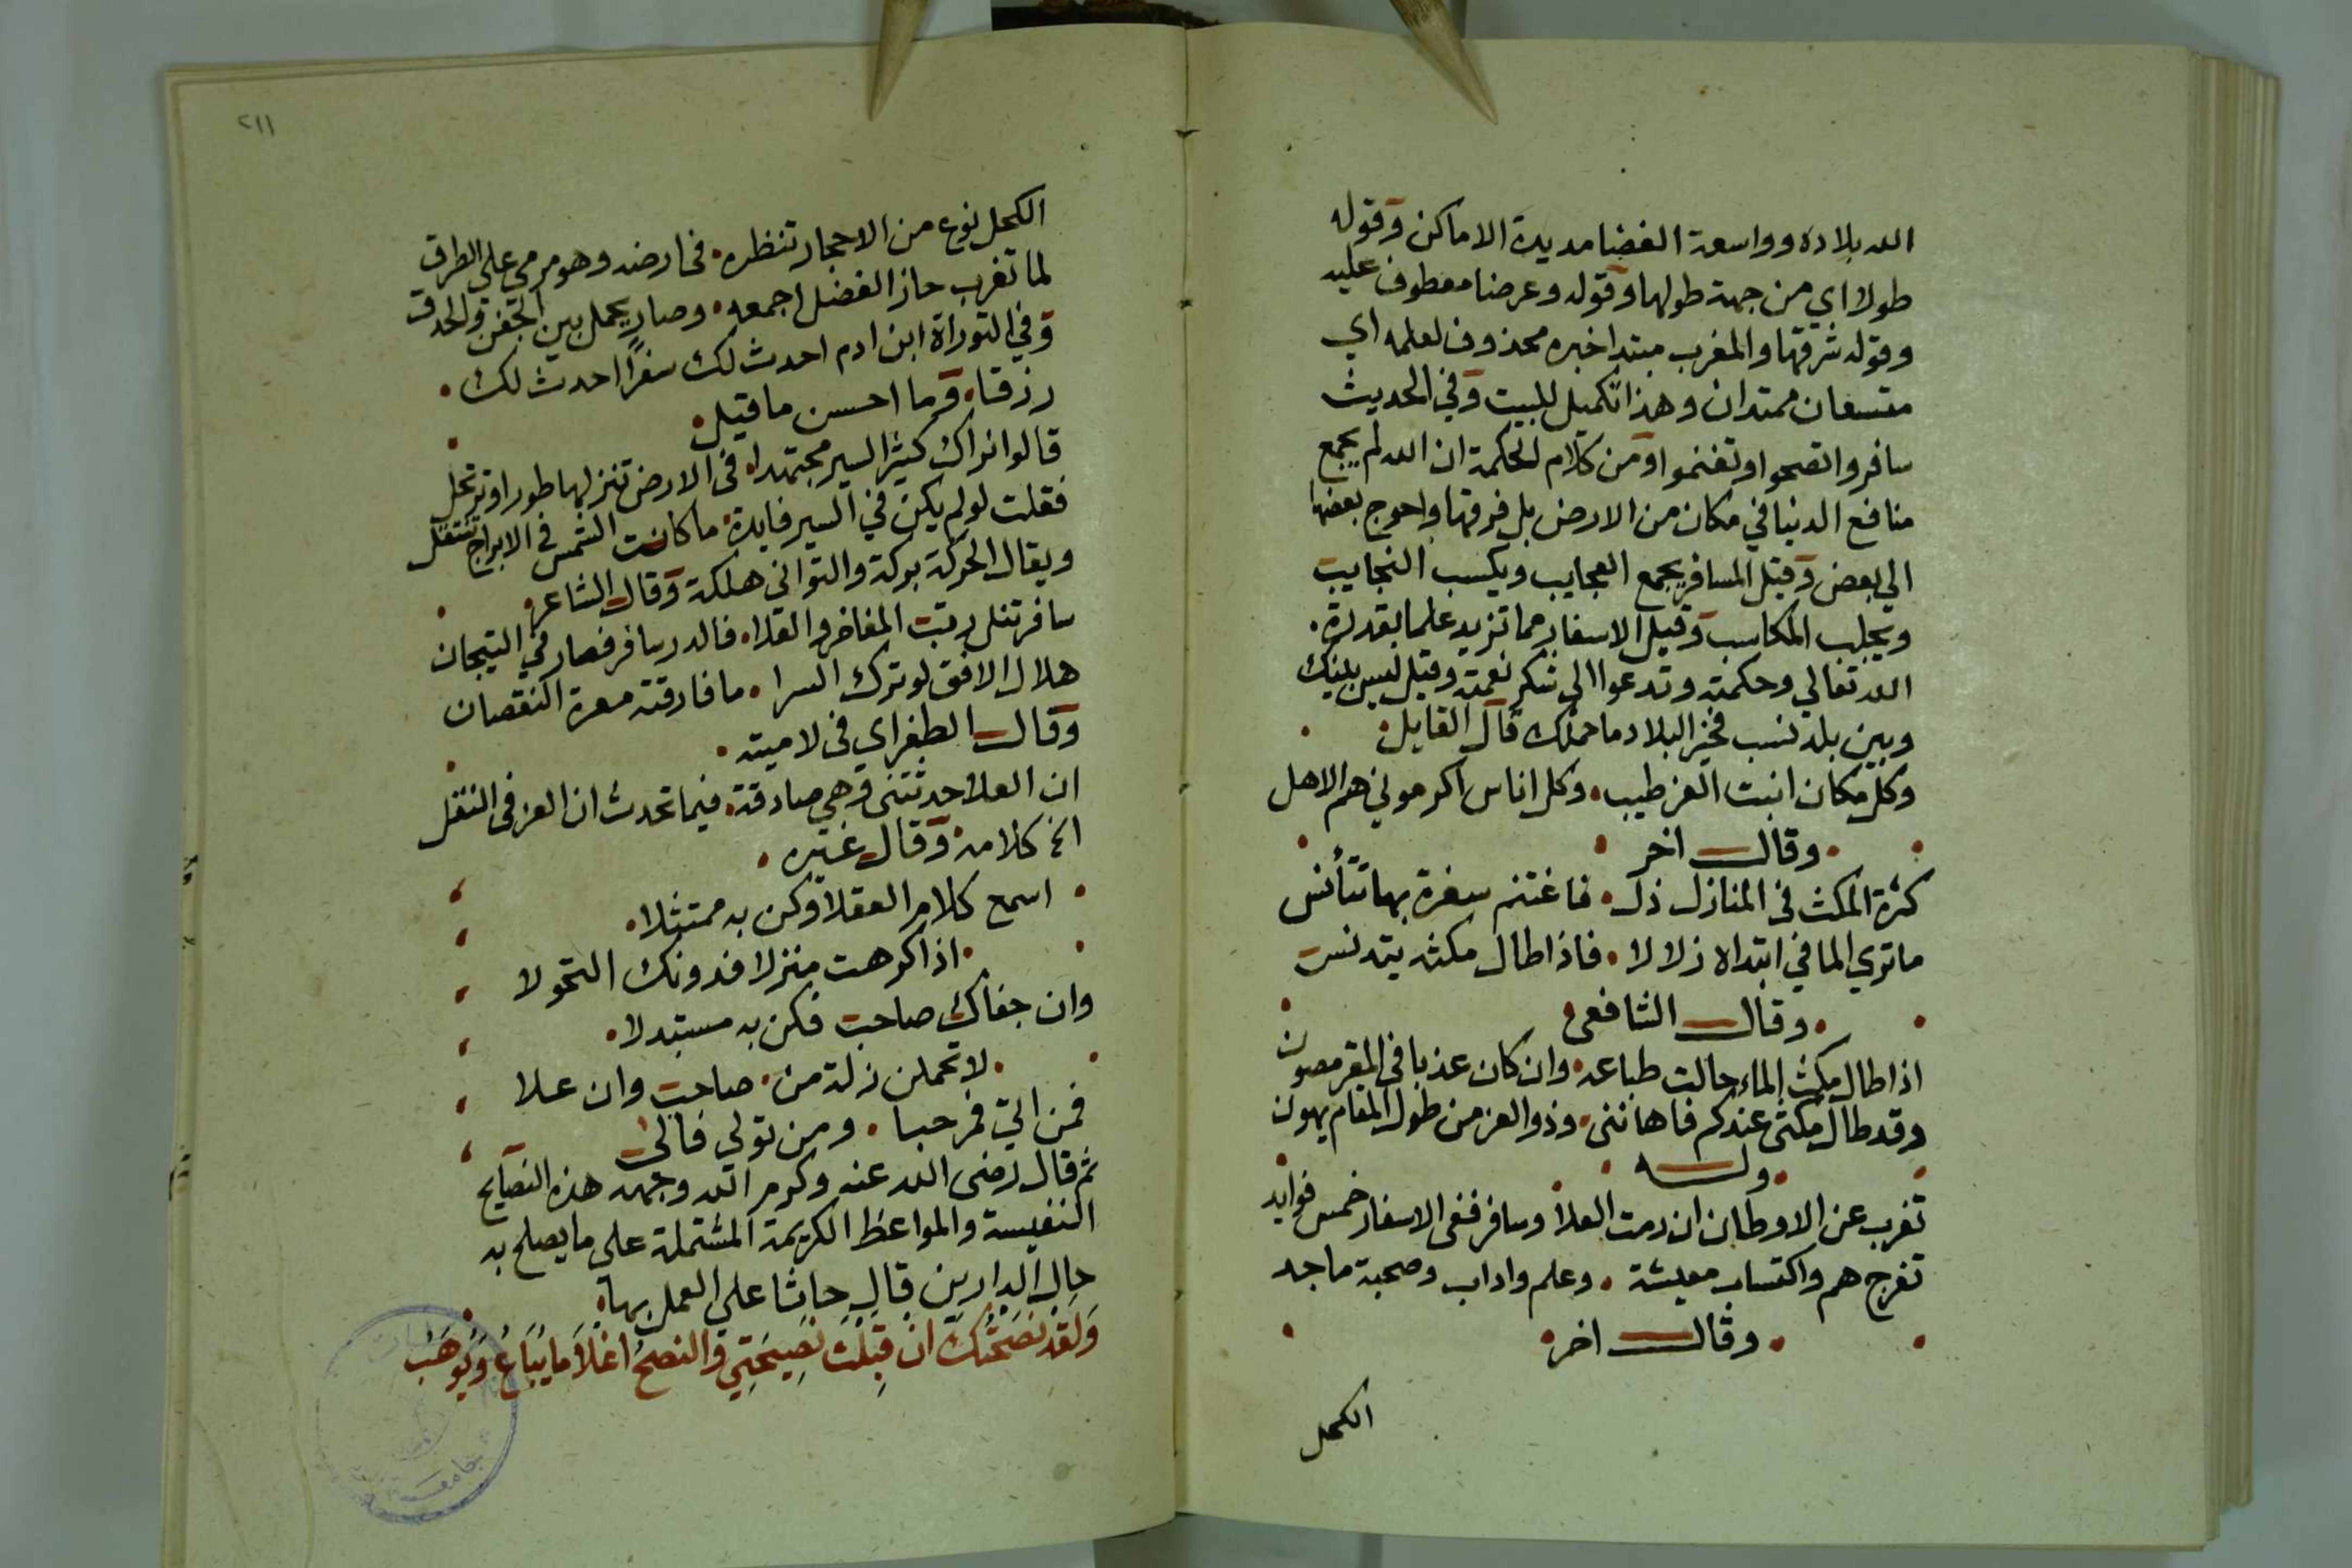 الله بلاده وواسعة الفضا مديدة الاماكن وقوله
طولا اي من جهة طولها وقوله وعرضا معطوف عليه
وقوله شرقها والمغرب مبتدا خبره محذوف لعلمه اي
متسعان ممتدان وهذا تكميل للبيت وفي الحديث
سافروا تصحوا وتغنموا ومن كلام الحكمة ان الله لم يجمع
منافع الدنيا في مكان من الارض بل فرقها واحوج بعضها
الي بعض وقيل المسافر يجمع العجايب ويكسب التجايب
ويجلب المكاسب وقيل الاسفار مما تزيد علما بقدرة
الله تعالي وحكمته وتدعوا الى شكر نعمته وقيل ليس بينك
وبين بلد نسب فخير البلاد ما حملك قال القايل
وكل مكان انبت العز طيب وكل اناس اكرموني هم الاهل
وقال اخر
كثرة المكث في المنازل ذل فاغتنم سفرة بها تتأنس
ما تري الما في ابتداه زلالا فاذا طال مكثه يتدنس
وقال الشافعي
اذا طال مكث الماء حالت طباعه وان كان عذبا في المقر مصون
وقد طال مكثى عندكم فاهاننى وذو العز من طول المقام يهون
وله
تغرب عن الاوطان ان رمت العلا وسافر ففى الاسفار خمس فوايد
تفرج هم واكتساب معيشة وعلم واداب وصحبة ماجد
وقال اخر
الكحل
٢١١
الكحل نوع من الاحجار تنظره في ارضه وهو مرمى على الطرق
لما تغرب حاز الفضل اجمعه وصار يحمل بين الجفن والحدق
وفي التوراة ابن ادم احدث لك سفرا احدث لك
رزقا وما احسن ما قيل
قالوا نراك كثير السير مجتهدا في الارض تنزلها طورا وترتحل
فقلت لو لم يكن في السير فايدة ما كانت الشمس في الابراج تنتقل
ويقال الحركة بركة والتوانى هلكة وقال الشاعر
سافر تنل رتبت المفاخر والعلا فالدر سافر فصار في التيجان
هلال الافق لو ترك السرا ما فارقته معرة النقصان
وقال الطغراي في لاميته
ان العلا حدثتنى وهي صادقة فيما تحدث ان العز في النقل
الخ كلامه وقال غيره
اسمع كلام العقلا وكن به ممتثلا
اذا كرهت منزلا فدونك التحولا
وان جفاك صاحب فكن به مستبدلا
لا تحملن زلة من صاحب وان علا
فمن اتي فمرحبا ومن تولى فالى
ثم قال رضى الله عنه وكرم الله وجهه هذه النصايح
النفيسة والمواعظ الكريمة المشتملة على ما يصلح به
حال الدارين قال حاثا على العمل بها
وَلَقَد نَصَحْتُكَ ان قَبِلْتَ نَصِيحَتِي وَالنصحُ اغلا مَا يُبَاعُ وَيُوهَبُ